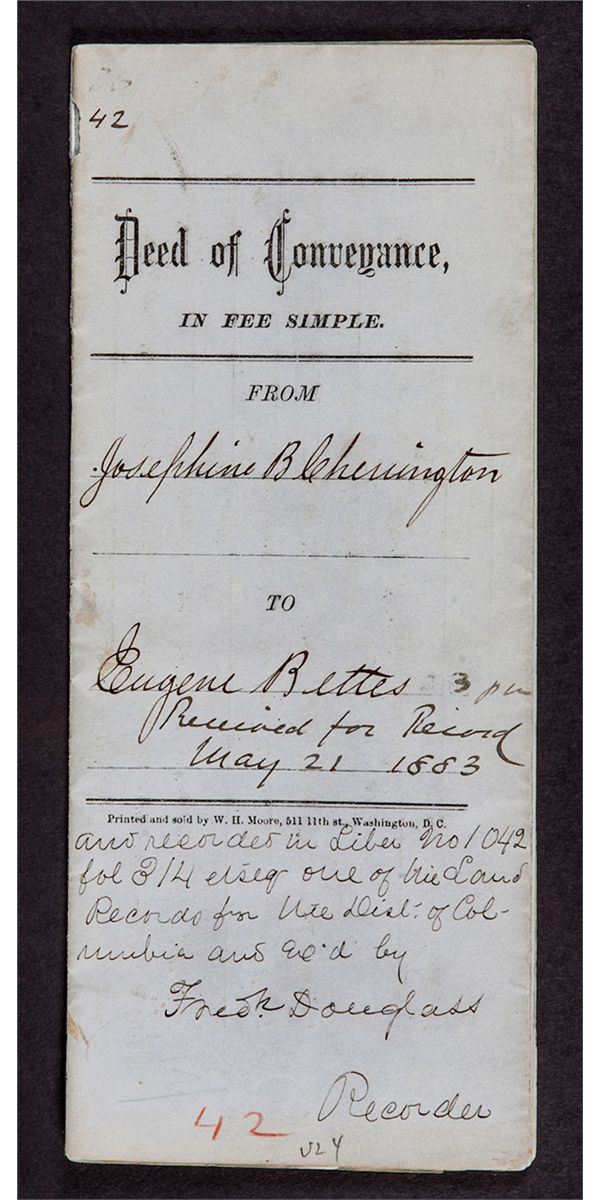 42
Deed of Conveyance,
IN FEE SIMPLE.
FROM
Josephine B Cherrington
TO
Eugene Bettes 3 pm
Received for Record
May 21 1883
Printed and sold by W. H. Moore, 511 11th st., Washington, D. C.
and recorded in Liber No 1042
fol 314 etseq one of the Land
Records for the Dist. of Col-
umbia and Ex'd by
Fredk. Douglass
Recorder
42